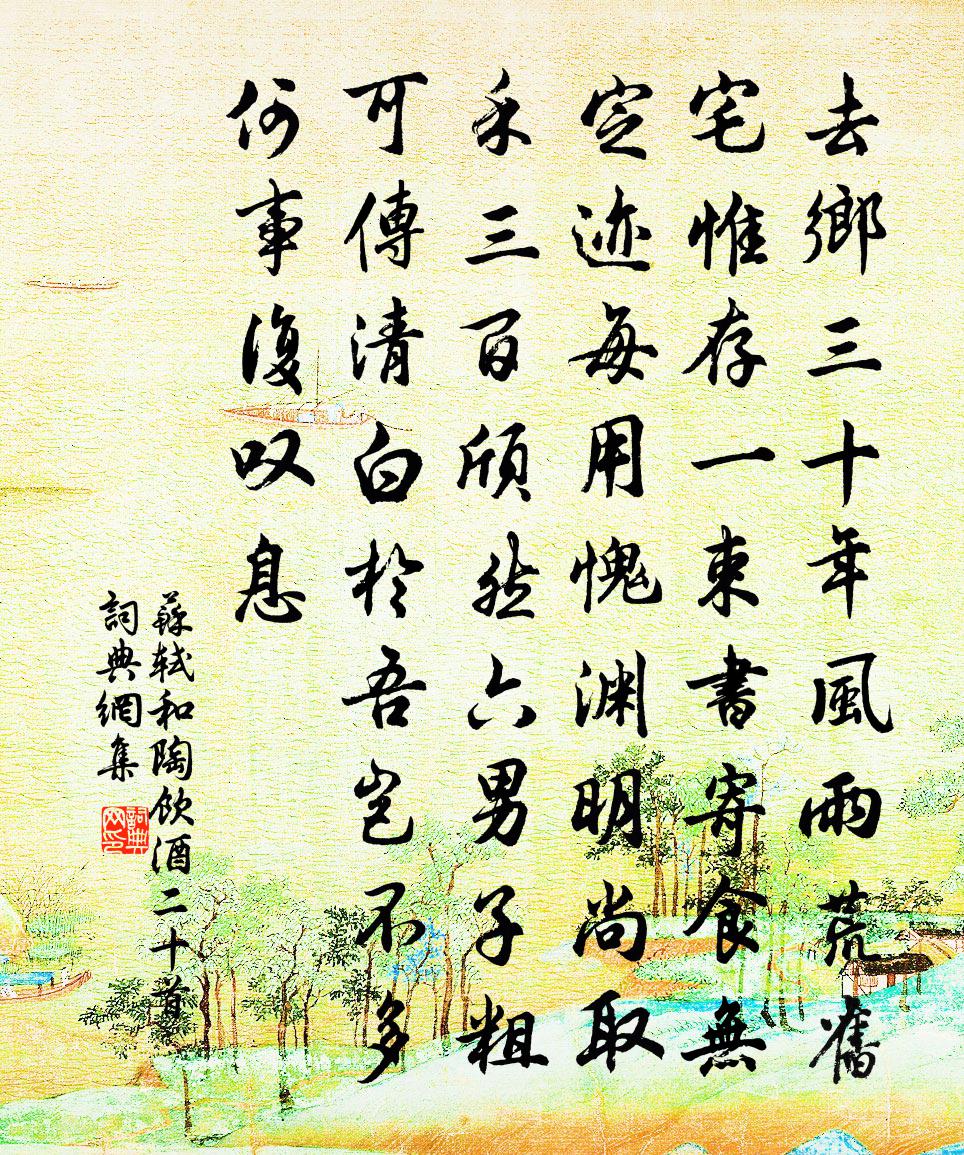 去鄉三十年風雨荒舊
宅惟存一束書寄食無
定迹每用愧渊明尚取
禾三百頎然六男子粗
可傳清白於吾豈不多
何事復叹息
蘇軾和陶飲酒二十首
詞典網集
詞典网印